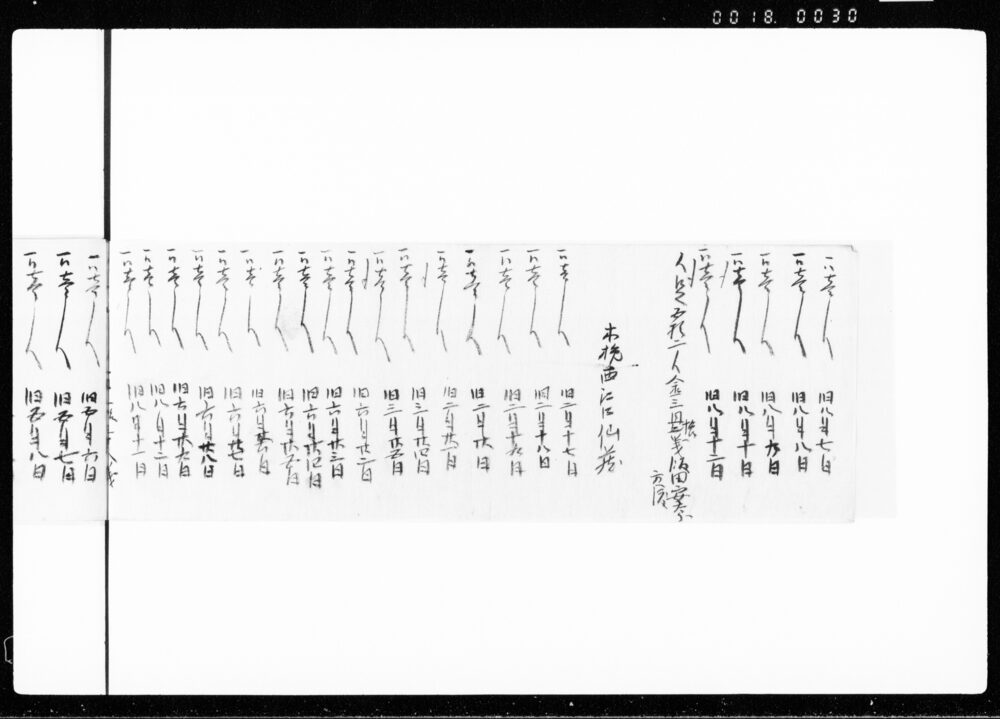 0018. 0030
一同壱人 旧八月七日
一同壱人 旧八月八日
一同壱人 旧八月九日
一同壱人 旧八月十日
一同壱人 旧八月十二日
人足 二人 金三
木挽 西江口仙蔵
一同壱人 旧二月十七日
一同壱人 旧二月十八日
一同壱人 旧二月十九日
一同壱人 旧二月廿日
一同壱人 旧二月廿一日
一同壱人 旧三月廿四日
一同壱人 旧三月廿五日
一同壱人 旧六月廿二日
一同壱人 旧六月廿三日
一同壱人 旧六月廿四日
一同壱人 旧六月廿五日
一同壱人 旧六月廿六日
一同壱人 旧六月廿七日
一同壱人 旧六月廿八日
一同壱人 旧六月廿九日
一同壱人 旧八月十二日
一同壱人 旧八月十一日
一同壱人 旧五月六日
一同壱人 旧五月七日
一同壱人 旧五月八日